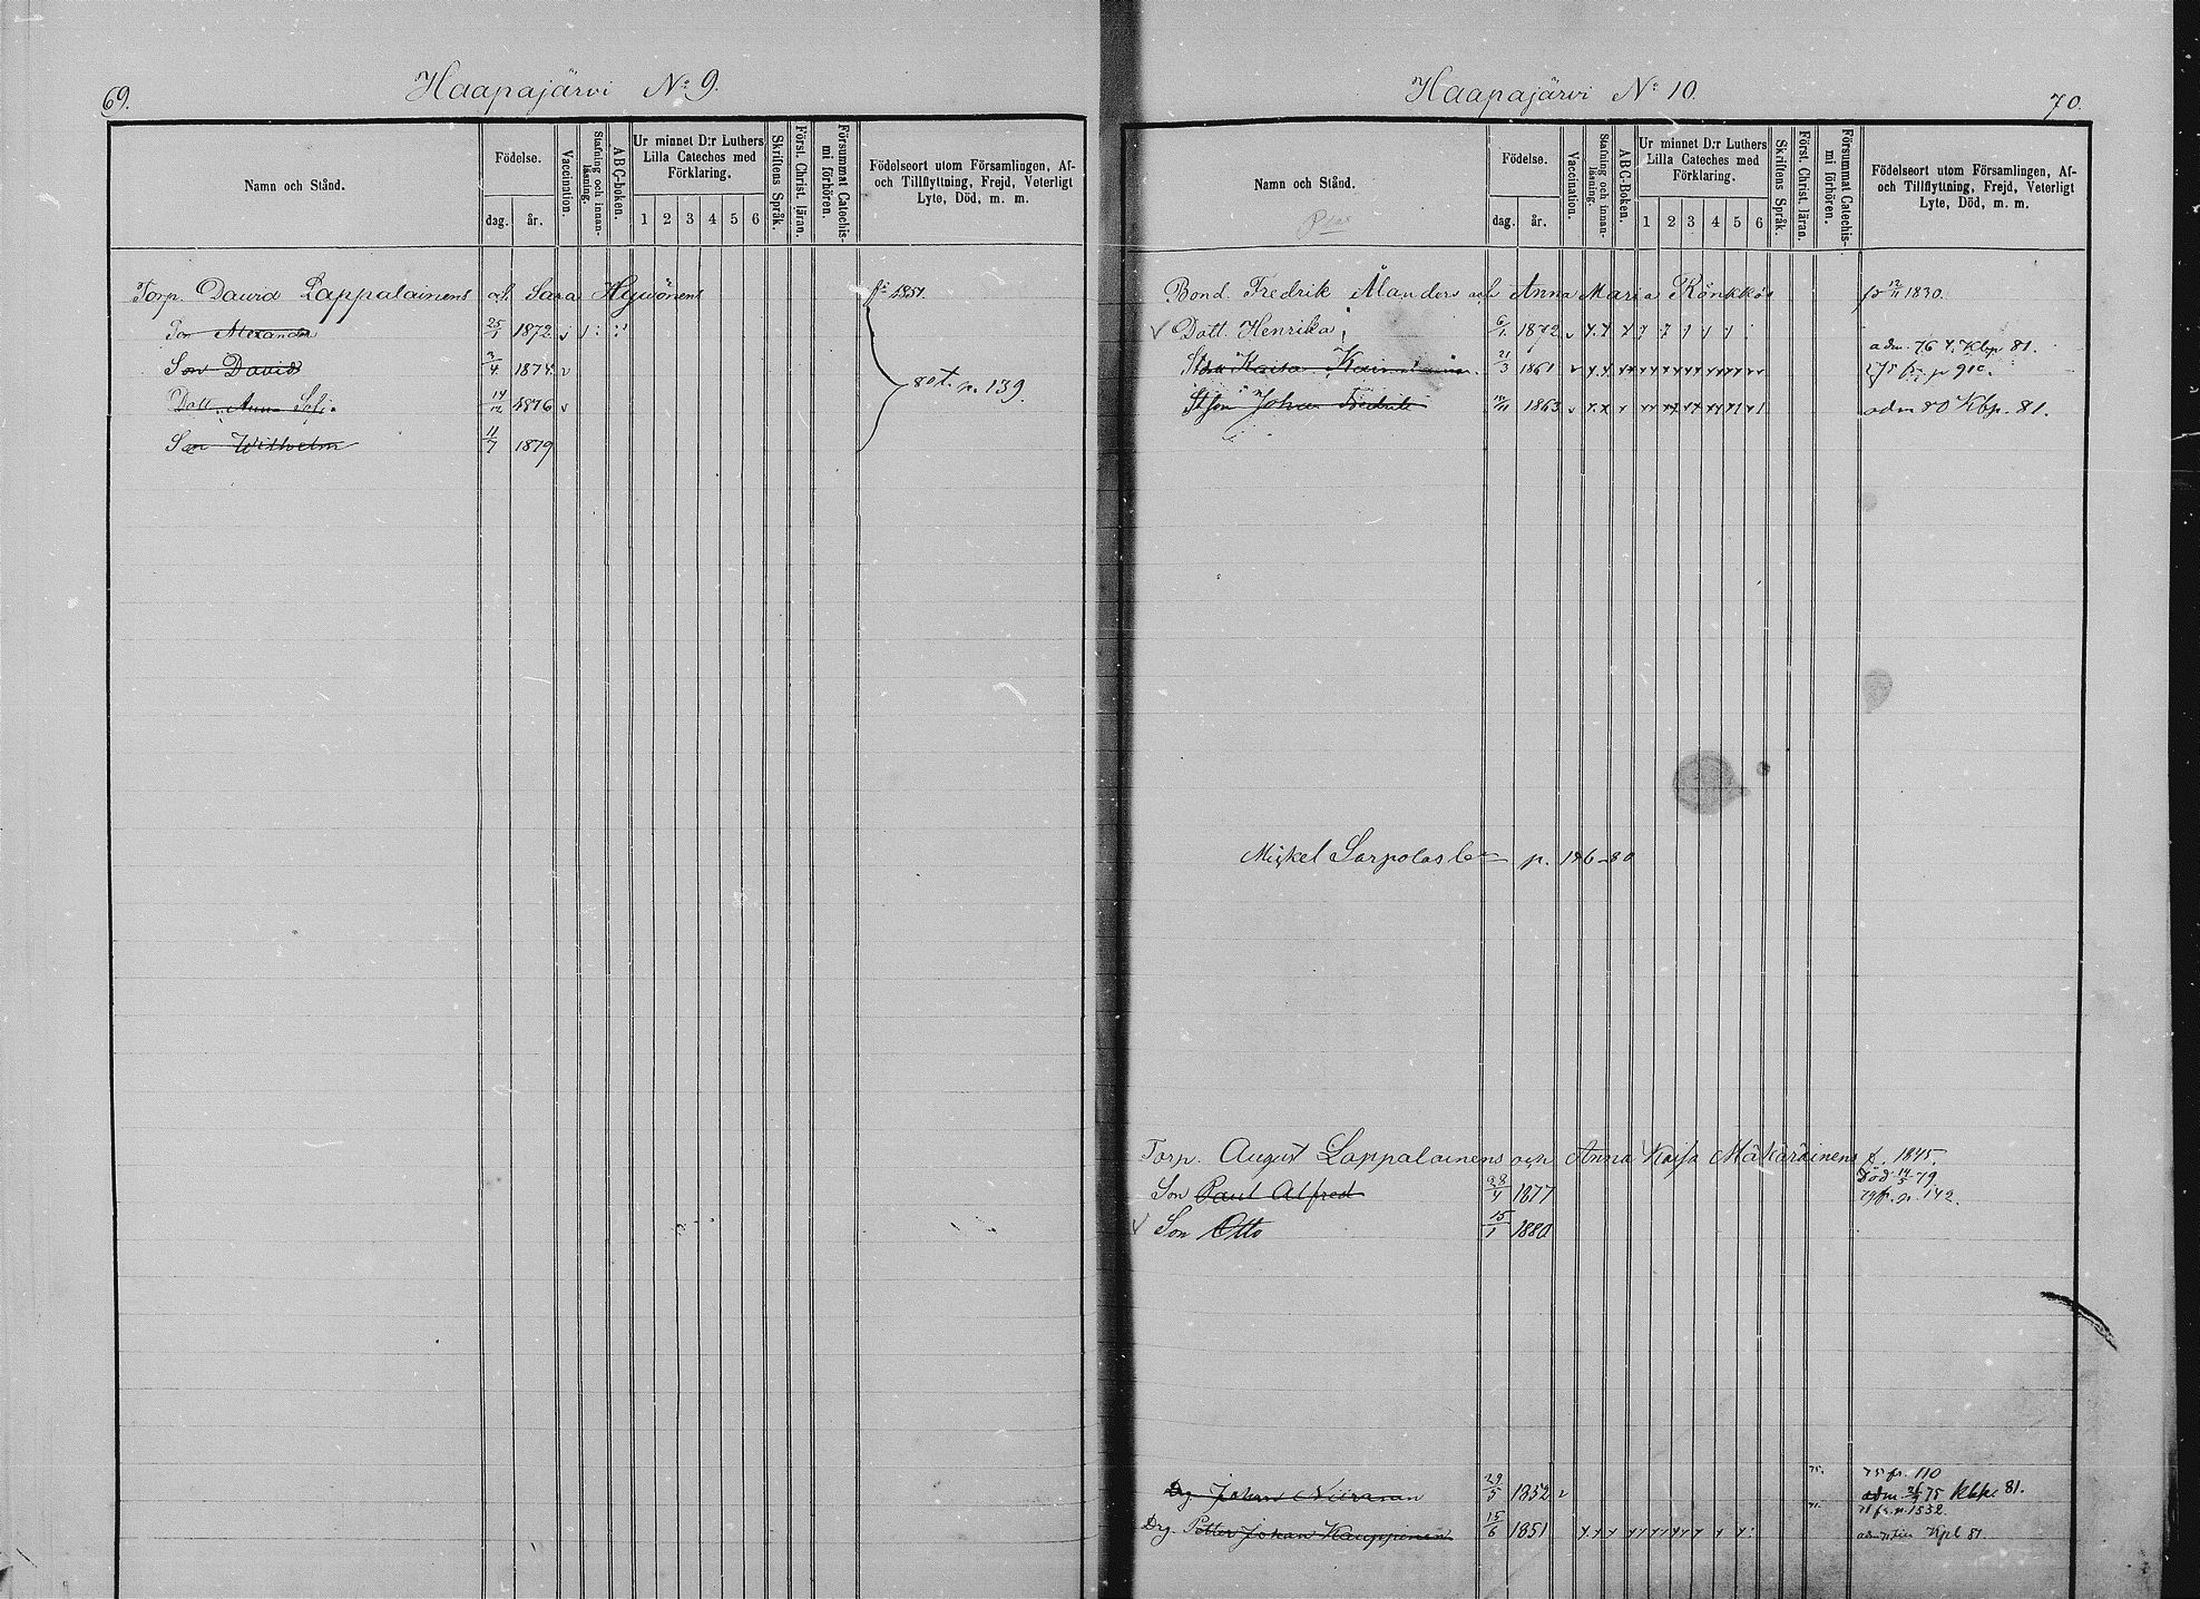 69.
Haapajärvi No 9.
Namn och Stånd.
Födelse.
dag. år.
Vaccination.
Stafning och innan-läsning.
A B C-boken.
Ur minnet D:r Luthers Lilla Cateches med Förklaring.
1 2 3 4 5 6
Skriftens Språk.
Först. Christ. läran.
Försummat Catechis-mi förhören.
Födelseort utom Församlingen, Af- och Tillflyttning, Frejd, Veterligt Lyte, Död, m. m.
Torp. David Lappalainens o. h. Sara Hyvönens 1851.
Son Alexander 25/1 1872
Son David 3/4 1874 v
Dott. Anna Sofia 14/12 1876 v
80 f. p. 139.
Son Wilhelm 11/7 1879
Haapajärvi No 10.
70.
Namn och Stånd.
Födelse.
dag. år.
Vaccination.
Stafning och innan-läsning.
A B C-Boken.
Ur minnet D:r Luthers Lilla Cateches med Förklaring.
1 2 3 4 5 6
Skriftens Språk.
Först. Christ. läran.
Försummat Catechis-mi förhören.
Födelseort utom Församlingen, Af- och Tillflyttning, Frejd, Veterligt Lyte, Död, m. m.
Bond. Fredrik Ålanders och Anna Maria Rönkkös 12/11 1830.
v Dott. Henrika 6/1 1872 v
adm. 76 Kbp 81.
Kaisa 21/3 1861 v
St son Johan Fredrik 1863 v adm 80 Kbp. 81.
Mickel Sarpolas p. 186-80
Torp. August Lappalainens och Anna Kaisa Mäkäräinens f. 1845.
Död 14/5 79.
Son Paul Alfred 28/4 1877 79 p. 142.
v Son Otto 15/1 1880
75. 75 fr. 110
Drg. Johan Niiranen 29/5 1852 v adm. 75 Kbk. 81.
71. 71 fr. p. 1552.
Drg. Petter Johan Kauppinen 15/6 1851 Kpl 81.